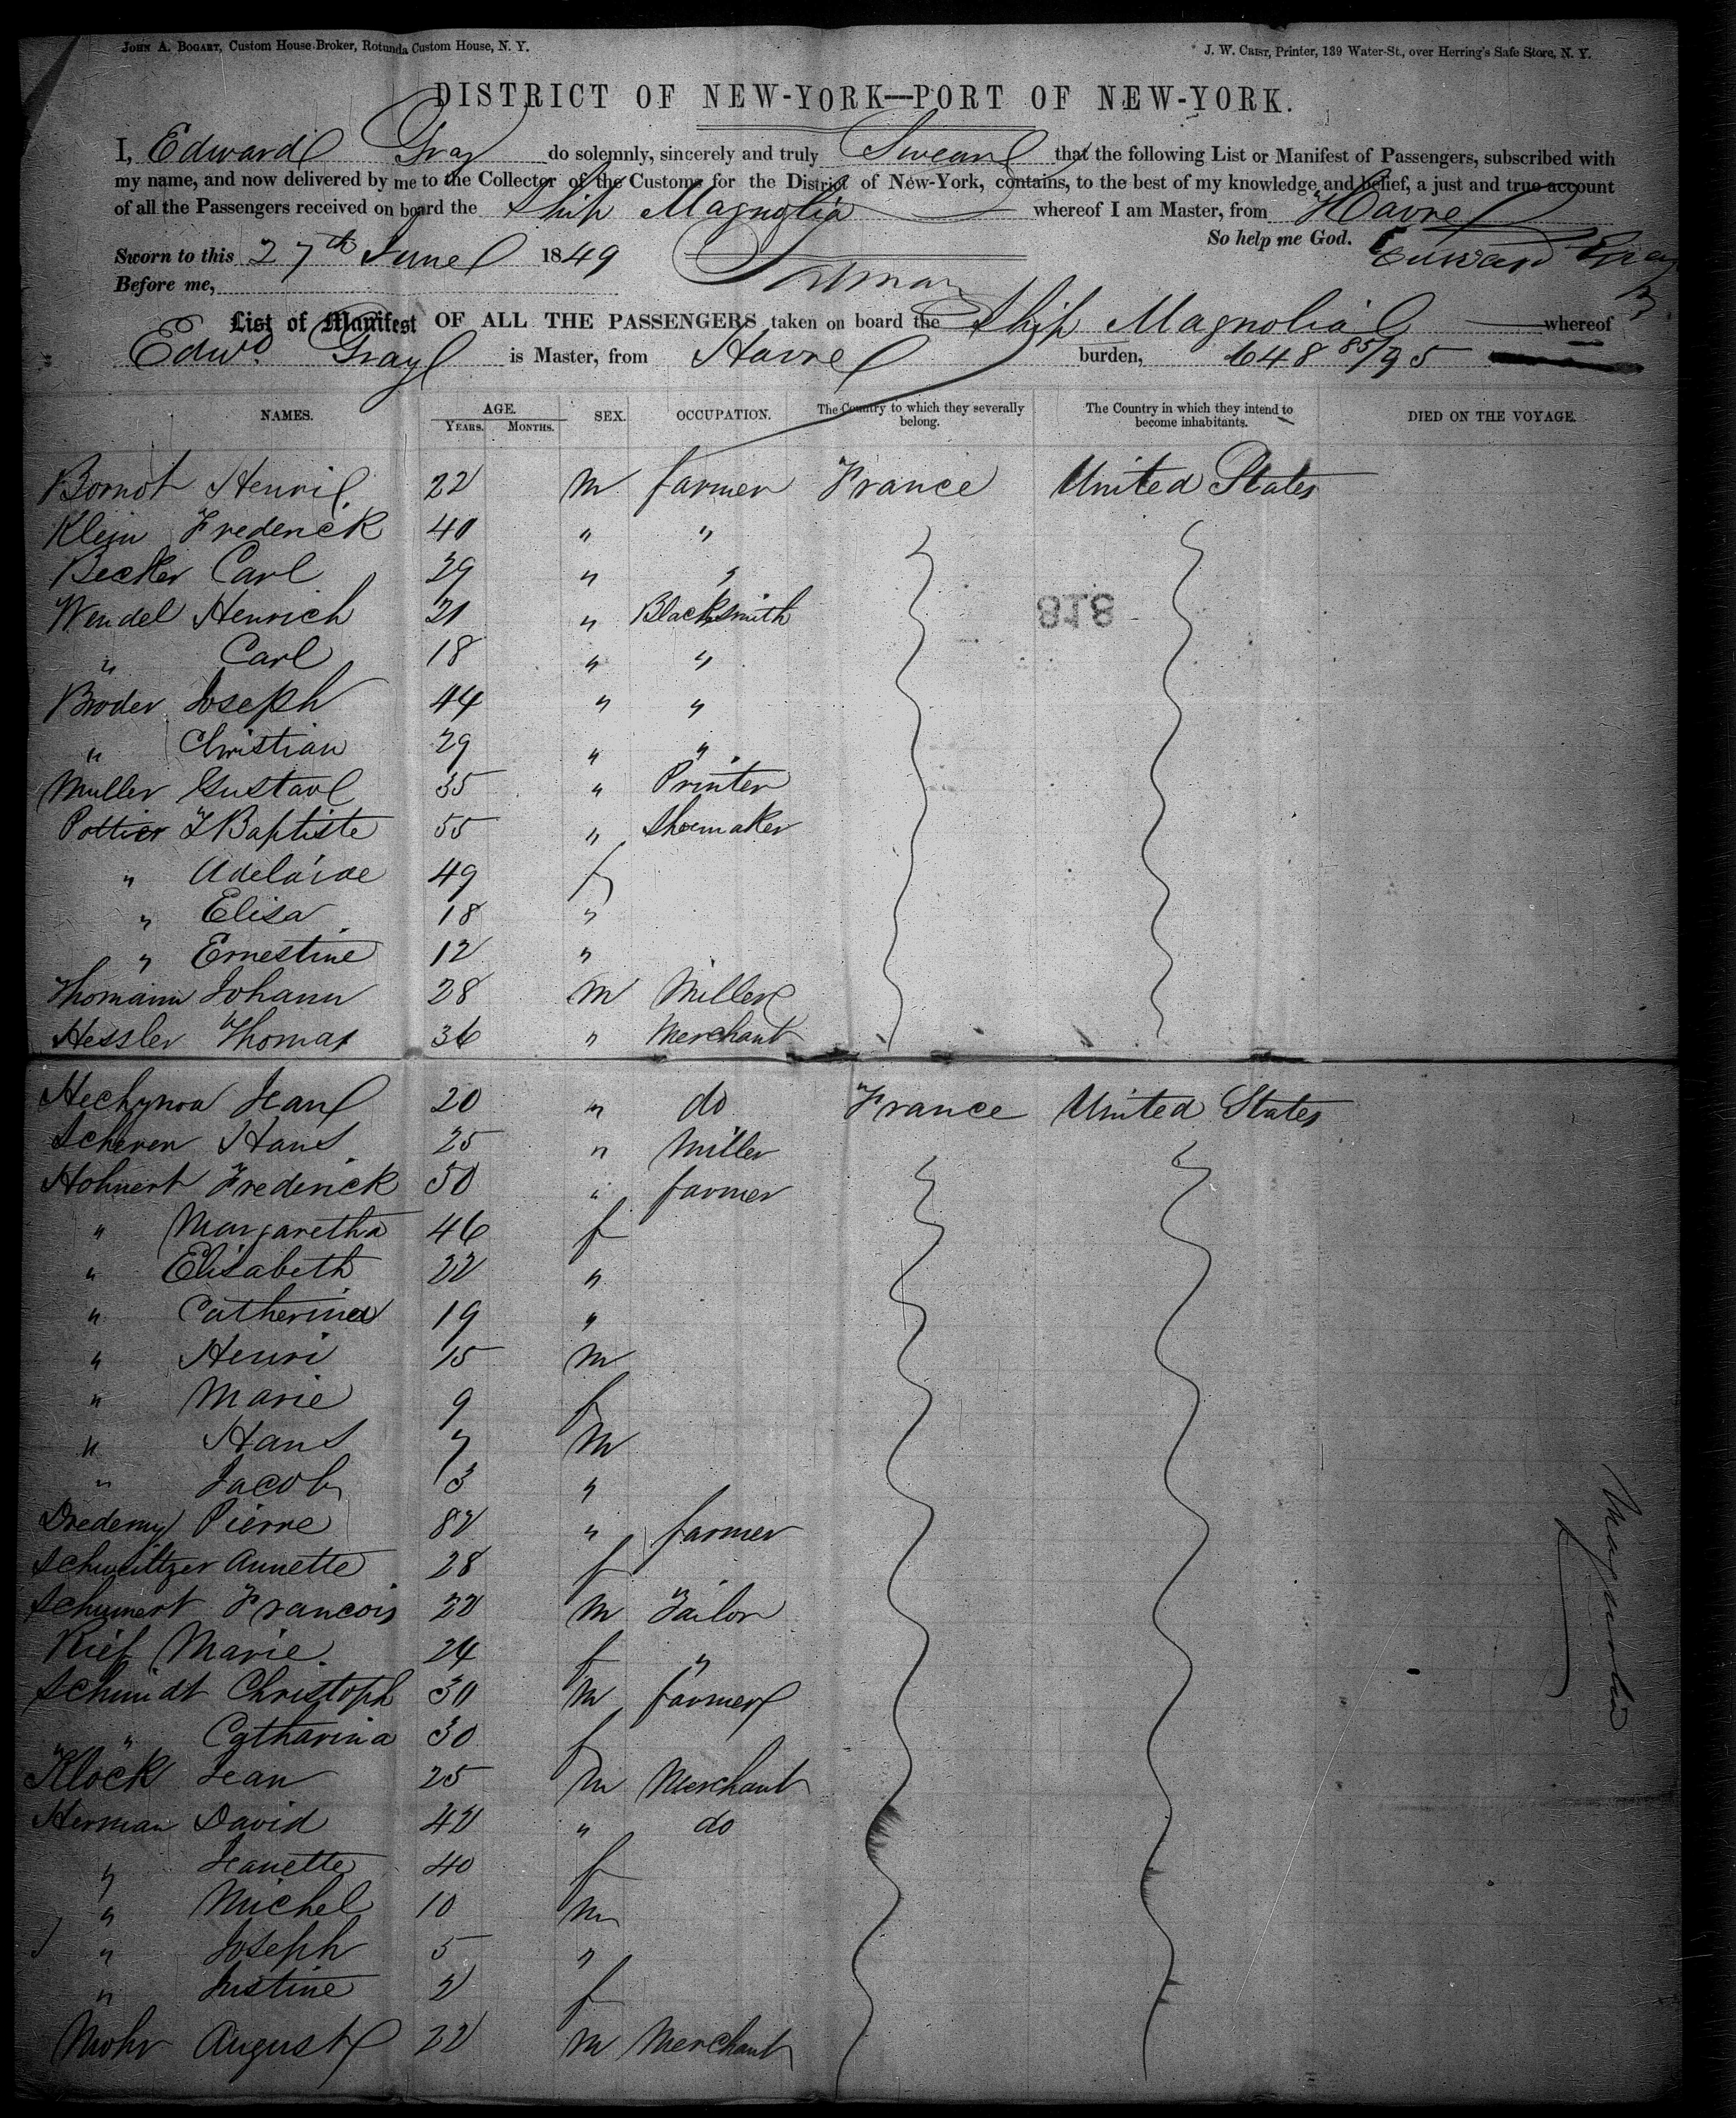 JOHN A. BOGART, Custom House Broker, Rotunda Custom House, N. Y.
J. W. CRIST, Printer, 139 Water-St., over Herring's Safe Store, N. Y.
DISTRICT OF NEW-YORK—PORT OF NEW-YORK.
I, Edward Gray do solemnly, sincerely and truly Swear that the following List or Manifest of Passengers, subscribed with
my name, and now delivered by me to the Collector of the Customs for the District of New-York, contains, to the best of my knowledge and belief, a just and true account
of all the Passengers received on board the Ship Magnolia whereof I am Master, from Havre
So help me God. Edward Gray
Sworn to this 27th June 1849
Before me,
List of Manifest OF ALL THE PASSENGERS taken on board the Ship Magnolia whereof
Edwd. Gray is Master, from Havre burden, 648 85/95
NAMES. AGE. YEARS. MONTHS. SEX. OCCUPATION. The Country to which they severally belong. The Country in which they intend to become inhabitants. DIED ON THE VOYAGE.
Bornot Henri 22 m farmer France United States
Klein Frederick 40 " "
Becker Carl 29 " "
Wendel Henrich 21 " Blacksmith
818
" Carl 18 " "
Broder Joseph 44 " "
" Christian 29 " "
Muller Gustav 35 " Printer
Pottier J Baptiste 55 " Shoemaker
" Adelaide 49 f
" Elisa 18 "
" Ernestine 12 "
Thomann Johann 28 m Miller
Hessler Thomas 36 " Merchant
Jean 20 " do France United States
Scheren Hans 25 " Miller
Hohnert Frederick 50 " farmer
" Margaretha 46 f
" Elisabeth 22 "
" Catherina 19 "
" Henri 15 m
" Marie 9 f
" Hans 7 m
" Jacob 3 "
Pierre 82 " farmer
Schwiltzer Annette 28 f
Schumert Francois 22 m Tailor
Rief Marie 24 f "
Schmidt Christoph 30 m farmer
" Catharina 30 f
Klock Jean 25 m Merchant
Herman David 42 " do
" Jeanette 40 f
" Michel 10 m
" Joseph 5 "
" Justine 2 f
Mohr August 22 m Merchant
Magnolia